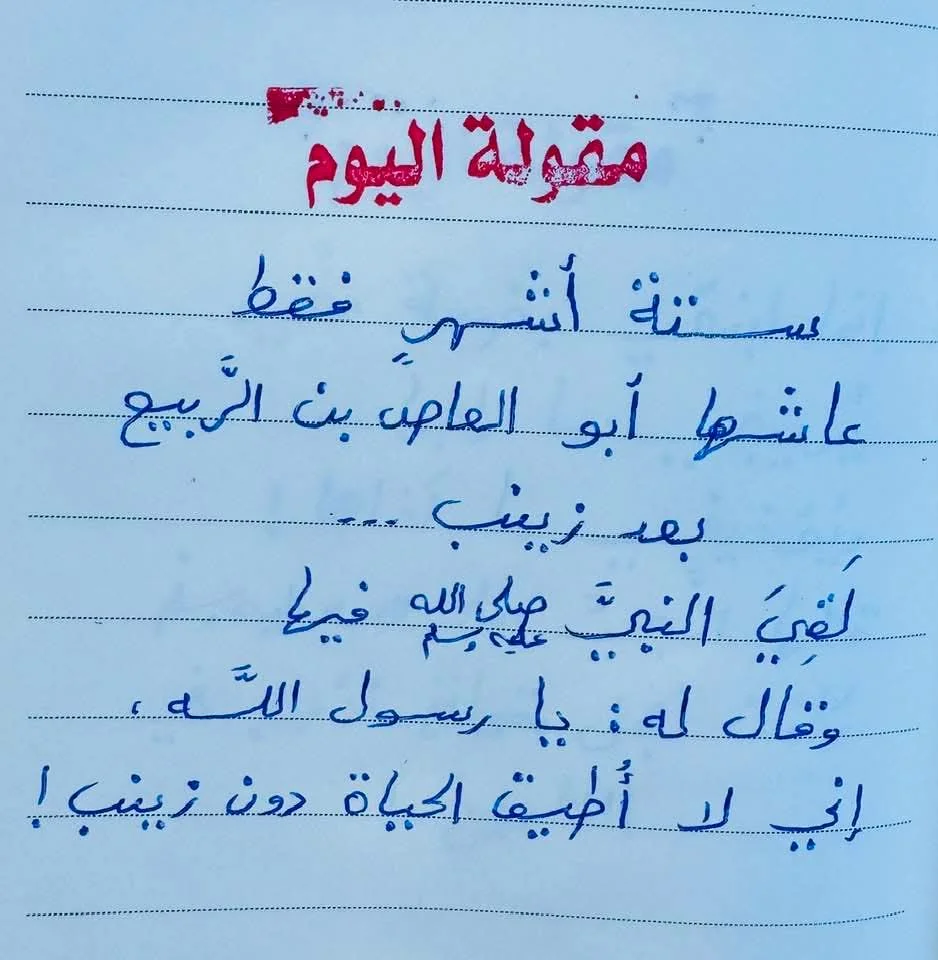 مقولة اليوم
ستة أشهرٍ فقط
عاشها أبو العاص بن الرَّبيع
بعد زينب ...
لَقِيَ النبيَّ صلى الله عليه وسلم فيها
وقال له: يا رسول اللَّه،
إني لا أُطيق الحياة دون زينب!